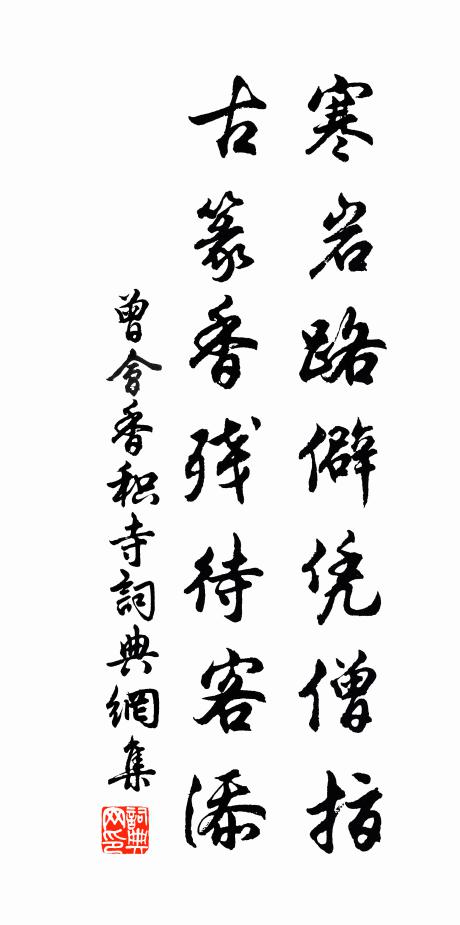 寒岩路僻凭僧指
古篆香残待客添
曾會香积寺詞典網集
詞典网印